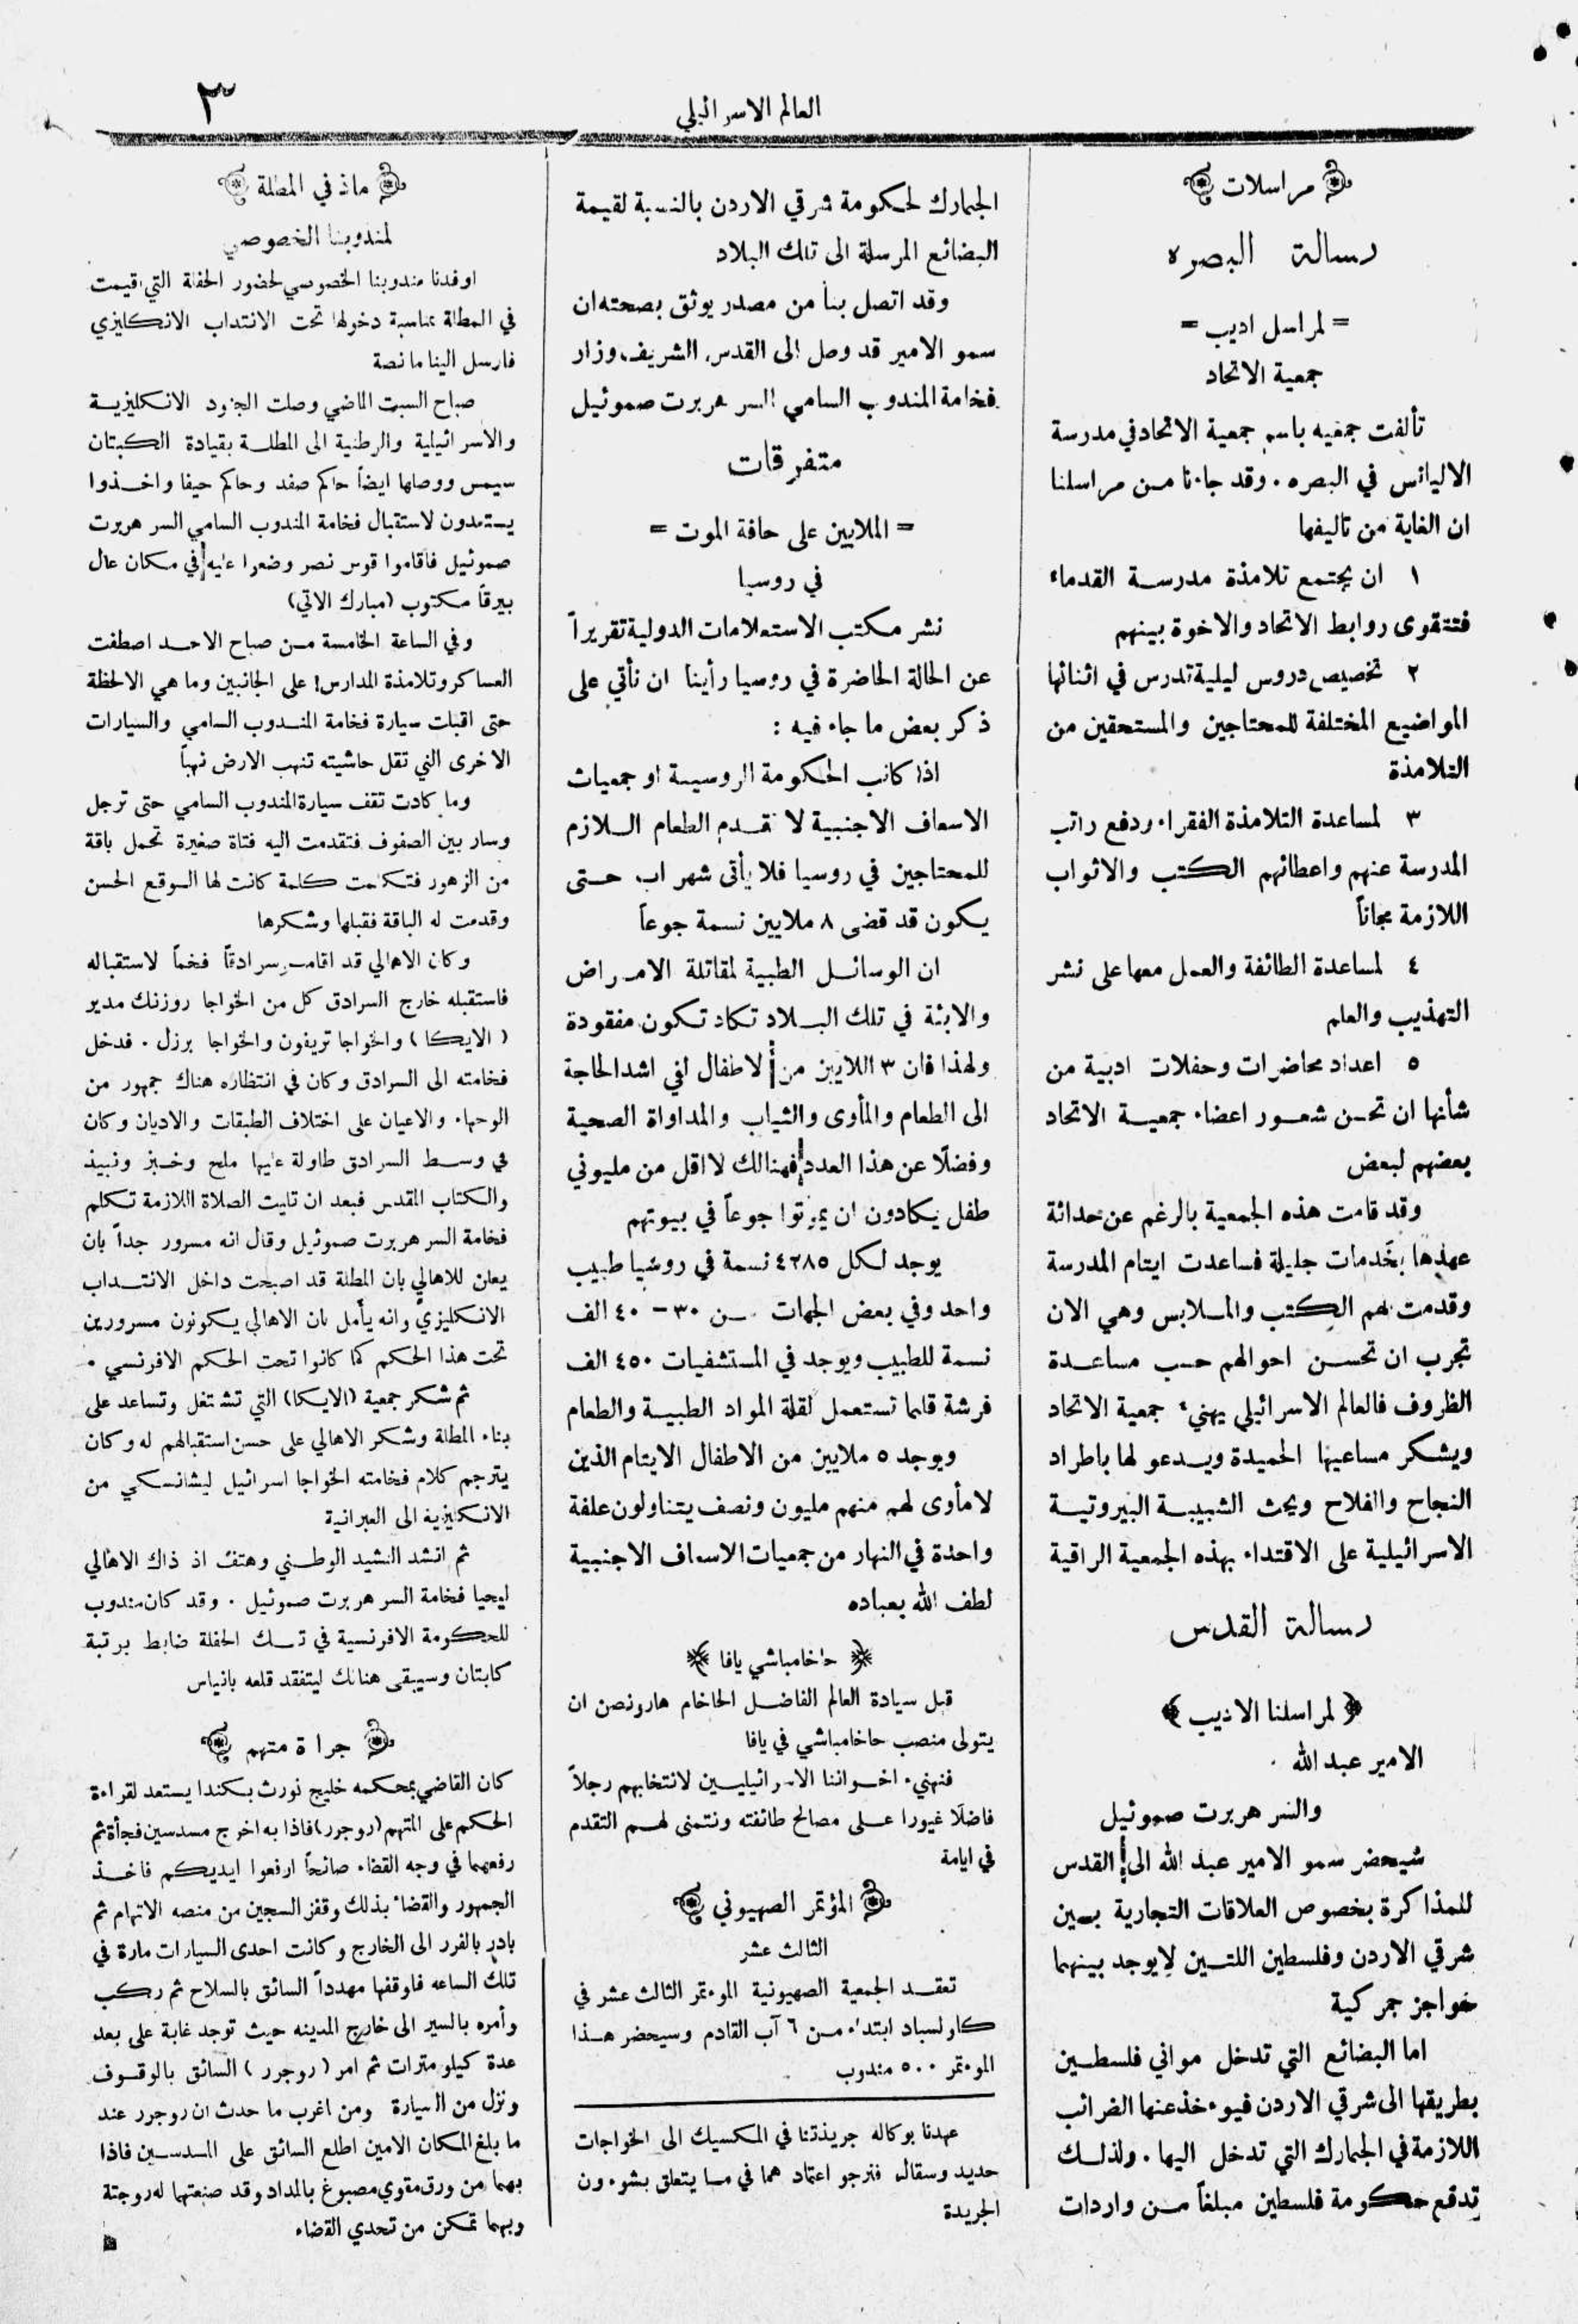 العالم الاسرائيلي
٣
مراسلات
رسالة البصره
= لمراسل اديب =
جمعية الاتحاد
تألفت جمعيه باسم جمعية الاتحاد في مدرسة
الاليانس في البصره . وقد جاءنا من مراسلنا
ان الغاية من تاليفها
١ ان يجتمع تلامذة مدرسة القدماء
فتتقوى روابط الاتحاد والاخوة بينهم
٢ تخصيص دروس ليلية تدرس في اثنائها
المواضيع المختلفة للمحتاجين والمستحقين من
التلامذة
٣ لمساعدة التلامذة الفقراء ودفع راتب
المدرسة عنهم واعطائهم الكتب والاثواب
اللازمة مجاناً
٤ لمساعدة الطائفة والعمل معها على نشر
التهذيب والعلم
٥ اعداد محاضرات وحفلات ادبية من
شأنها ان تحسن شعور اعضاء جمعية الاتحاد
بعضهم لبعض
وقد قامت هذه الجمعية بالرغم عن حداثة
عهدها بخدمات جليلة فساعدت ايتام المدرسة
وقدمت لهم الكتب والملابس وهي الان
تجرب ان تحسن احوالهم حسب مساعدة
الظروف فالعالم الاسرائيلي يهنيء جمعية الاتحاد
ويشكر مساعيها الحميدة ويدعو لها باطراد
النجاح والفلاح ويحث الشبيبة البيروتية
الاسرائيلية على الاقتداء بهذه الجمعية الراقية
رسالة القدس
﴿ لمراسلنا الاديب ﴾
الامير عبد الله .
والسر هربرت صموئيل
سيحضر سمو الامير عبد الله الى القدس
للمذاكرة بخصوص العلاقات التجارية بين
شرقي الاردن وفلسطين اللتين لا يوجد بينهما
حواجز جمركية
اما البضائع التي تدخل مواني فلسطين
بطريقها الى شرقي الاردن فيوءخذ عنها الضرائب
اللازمة في الجمارك التي تدخل اليها . ولذلك
تدفع حكومة فلسطين مبلغاً من واردات
الجمارك لحكومة شرقي الاردن بالنسبة لقيمة
البضائع المرسلة الى تلك البلاد
وقد اتصل بنا من مصدر يوثق بصحته ان
سمو الامير قد وصل الى القدس الشريف وزار
فخامة المندوب السامي السر هربرت صموئيل
متفرقات
= الملايين على حافة الموت =
في روسيا
نشر مكتب الاستعلامات الدولية تقريراً
عن الحالة الحاضرة في روسيا رأينا ان نأتي على
ذكر بعض ما جاء فيه :
اذا كانت الحكومة الروسية او جمعيات
الاسعاف الاجنبية لا تقدم الطعام اللازم
للمحتاجين في روسيا فلا يأتى شهر اب حتى
يكون قد قضى ٨ ملايين نسمة جوعاً
ان الوسائل الطبية لمقاتلة الامراض
والابئة في تلك البلاد تكاد تكون مفقودة
ولهذا فان ٣ اللايين من الاطفال لفي اشد الحاجة
الى الطعام والمأوى والثياب والمداواة الصحية
وفضلًا عن هذا العدد فهنالك لا اقل من مليوني
طفل يكادون ان يموتوا جوعاً في بيوتهم
يوجد لكل ٤٢٨٥ نسمة في روسيا طبيب
واحد وفي بعض الجهات من ٣٠ – ٤٠ الف
نسمة للطبيب ويوجد في المستشفيات ٤٥٠ الف
فرشة قلما تستعمل لقلة المواد الطبية والطعام
ويوجد ٥ ملايين من الاطفال الايتام الذين
لا مأوى لهم منهم مليون ونصف يتناولون علفة
واحدة في النهار من جمعيات الاسعاف الاجنبية
لطف الله بعباده
حاخامباشي يافا
قبل سيادة العالم الفاضل الحاخام هارونصن ان
يتولى منصب حاخامباشي في يافا
فنهنيء اخواننا الاسرائيليين لانتخابهم رجلاً
فاضلًا غيورا على مصالح طائفته ونتمنى لهم التقدم
في ايامة
المؤتمر الصهيوني
الثالث عشر
تعقد الجمعية الصهيونية الموءتمر الثالث عشر في
كارلسباد ابتداء من ٦ آب القادم وسيحضر هذا
الموءتمر ٥٠٠ مندوب
عهدنا بوكاله جريدتنا في المكسيك الى الخواجات
حديد وسقال فنرجو اعتمادهما في ما يتعلق بشوءون
الجريدة
ماذ في المطلة
لمندوبنا الخصوصي
اوفدنا مندوبنا الخصوصي لحضور الحفلة التي اقيمت
في المطلة بمناسبة دخولها تحت الانتداب الانكليزي
فارسل الينا ما نصة
صباح السبت الماضي وصلت الجنود الانكليزية
والاسرائيلية والوطنية الى المطلة بقيادة الكبتان
سيمس ووصلها ايضاً حاكم صفد وحاكم حيفا واخذوا
يستعدون لاستقبال فخامة المندوب السامي السر هربرت
صموئيل فأقاموا قوس نصر وضعوا عليه في مكان عال
بيرقاً مكتوب (مبارك الاتي)
وفي الساعة الخامسة من صباح الاحد اصطفت
العساكر وتلامذة المدارس على الجانبين وما هي الالحظة
حتى اقبلت سيارة فخامة المندوب السامي والسيارات
الاخرى التي تقل حاشيته تنهب الارض نهباً
وما كادت تقف سيارة المندوب السامي حتى ترجل
وسار بين الصفوف فتقدمت اليه فتاة صغيرة تحمل باقة
من الزهور فتكلمت كلمة كانت لها الوقع الحسن
وقدمت له الباقة فقبلها وشكرها
وكان الاهالي قد اقامت سرادقاً فخماً لاستقباله
فاستقبله خارج السرادق كل من الخواجا روزنك مدير
( الايكا ) والخواجا تريفون والخواجا برزل . فدخل
فخامته الى السرادق وكان في انتظاره هناك جمهور من
الوجهاء والاعيان على اختلاف الطبقات والاديان وكان
في وسط السرادق طاولة عليها ملح وخبز ونبيذ
والكتاب المقدس فبعد ان تليت الصلاة اللازمة تكلم
فخامة السر هربرت صموئيل وقال انه مسرور جداً بان
يعلن للاهالي بان المطلة قد اصبحت داخل الانتداب
الانكليزي وانه يأمل بان الاهالي يكونون مسرورين
تحت هذا الحكم كما كانوا تحت الحكم الافرنسي .
ثم شكر جمعية (الايكا) التي تشتغل وتساعد على
بناء المطلة وشكر الاهالي على حسن استقبالهم له وكان
يترجم كلام فخامته الخواجا اسرائيل ليشانسكي من
الانكليزية الى العبرانية
ثم انشد النشيد الوطني وهتف اذ ذاك الاهالي
ليحيا فخامة السر هربرت صموئيل . وقد كان مندوب
للحكومة الافرنسية في تلك الحفلة ضابط برتبة
كابتان وسيبقى هنالك ليتفقد قلعه بانياس
جراة متهم
كان القاضي بمحكمه خليج نورث بكندا يستعد لقراءة
الحكم على المتهم (روجرر) فاذا به اخرج مسدسين فجأة ثم
رفعهما في وجه القضاء صائحاً ارفعوا ايديكم فاخذ
الجمهور والقضاء بذلك وقفز السجين من منصه الاتهام ثم
بادر بالفرر الى الخارج وكانت احدى السيارات مارة في
تلك الساعه فاوقفها مهدداً السائق بالسلاح ثم ركب
وأمره بالسير الى خارج المدينه حيث توجد غابة على بعد
عدة كيلو مترات ثم امر ( روجرر ) السائق بالوقوف
ونزل من السيارة ومن اغرب ما حدث ان روجرر عند
ما بلغ المكان الامين اطلع السائق على المسدسين فاذا
بهما من ورق مقوي مصبوغ بالمداد وقد صنعتهما له زوجتة
وبهما تمكن من تحدي القضاء